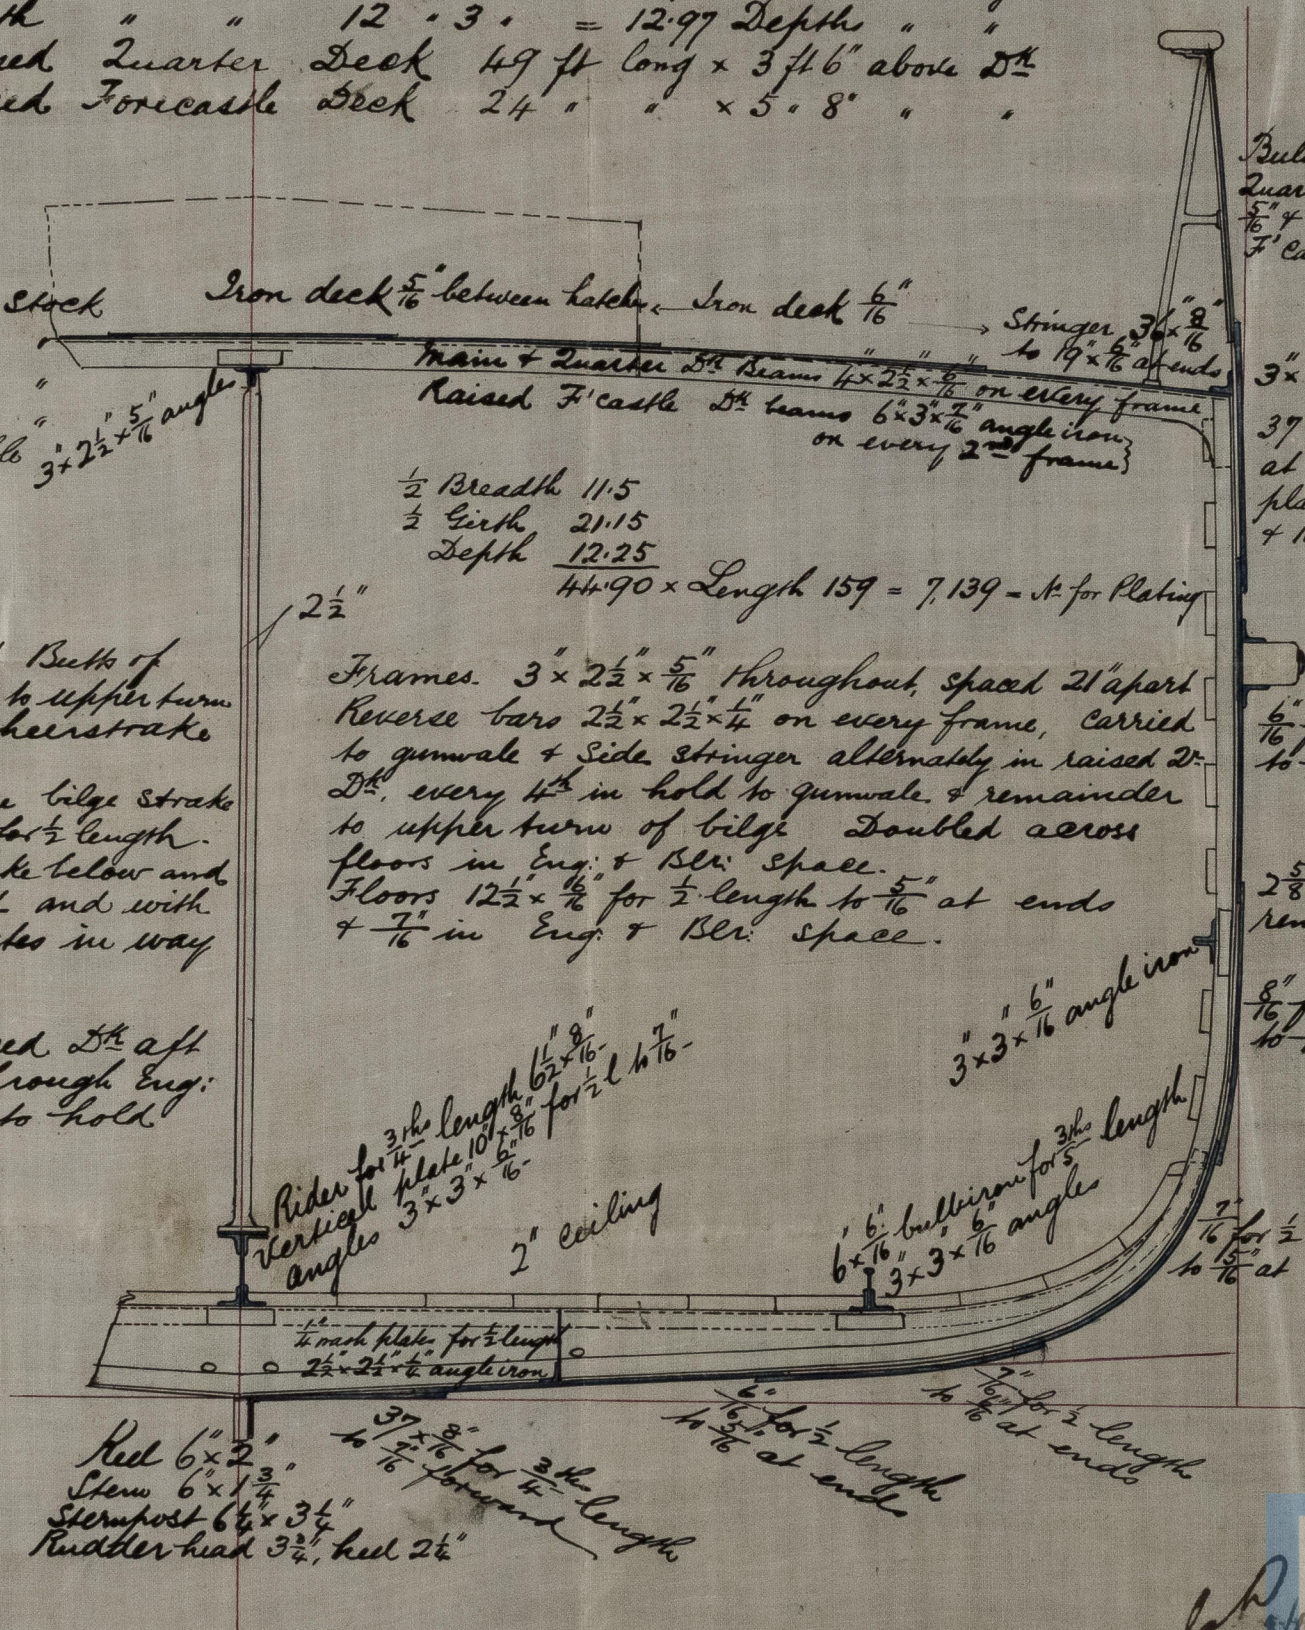 " " 12 " 3 " = 12.97 Depths " "
Quarter Deck 49 ft long × 3 ft 6" above Dk
Forecastle Deck 24 " " × 5 " 8" " "
Stock
Iron deck 5/16" between hatches
Iron deck 6/16"
Stringer 36" × 8/16"
to 19" × 6/16" at ends
Main & Quarter Dk Beams 4" × 2 1/2" × 6/16" on every frame
Raised F'castle Dk beams 6" × 3" × 7/16" angle iron
on every 2nd frame
3" × 2 1/2" × 5/16" angles
Quar
5/16" &
F'Ca
3" ×
37
at
pla
&
1/2 Breadth 11.5
1/2 Girth 21.15
Depth 12.25
44.90 × Length 159 = 7,139 = No for Plating
2 1/2"
Butts of
to upper turn
heerstrake
bilge strake
for 1/2 length.
ke below and
and with
tes in way
Dk aft
rough Eng:
to hold
Frames. 3" × 2 1/2" × 5/16" throughout, spaced 21" apart
Reverse bars 2 1/2" × 2 1/2" × 1/4" on every frame, carried
to gunwale & Side stringer alternately in raised Qr
Dk, every 4th in hold to gunwale & remainder
to upper turn of bilge Doubled across
floors in Eng: & Blr: space.
Floors 12 1/2" × 6/16" for 1/2 length to 5/16" at ends
& 7/16" in Eng: & Blr: space.
6/16"
to
2 5/8
rem
8/16"
to
3" × 3" × 6/16" angle iron
Rider for 3/4ths length 6 1/2" × 8/16"
Vertical plate 10" × 8/16" for 1/2 l to 7/16"
angles 3" × 3" × 6/16"
2" ceiling
6" × 6/16" bulb iron for 3/5ths length
3" × 3" × 6/16" angles
7/16" for 1/2
to 5/16" at
1/4" wash plates for 1/2 length
2 1/2" × 2 1/2" × 1/4" angle iron
Keel 6" × 2"
Stem 6" × 1 3/4"
Sternpost 6 1/4" × 3 1/4"
Rudder head 3 3/4", heel 2 1/4"
37" × 8/16" for 3/4ths length
to 7/16" forward
6/16" for 1/2 length
to 5/16" at ends
7/16" for 1/2 length
to 6/16" at ends